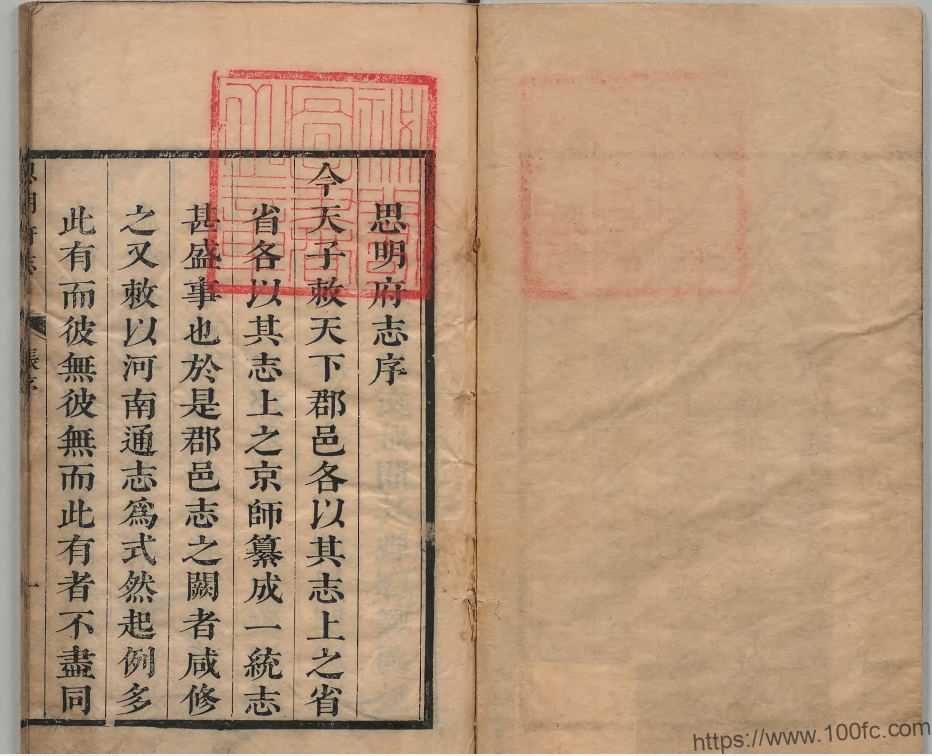 思明府志序
今天子敕天下郡邑各以其志上之省
省各以其志上之京師纂成一統志
甚盛事也於是郡邑志之闕者咸修
之又敕以河南通志爲式然起例多
此有而彼無彼無而此有者不盡同
思明府志
張序
一
https://www.100fc.com/